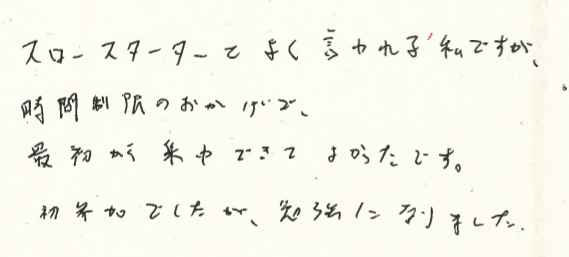 スロースターターとよく言われる私ですが、
時間制限のおかげで、
最初から集中できてよかったです。
初参加でしたが、勉強になりました。